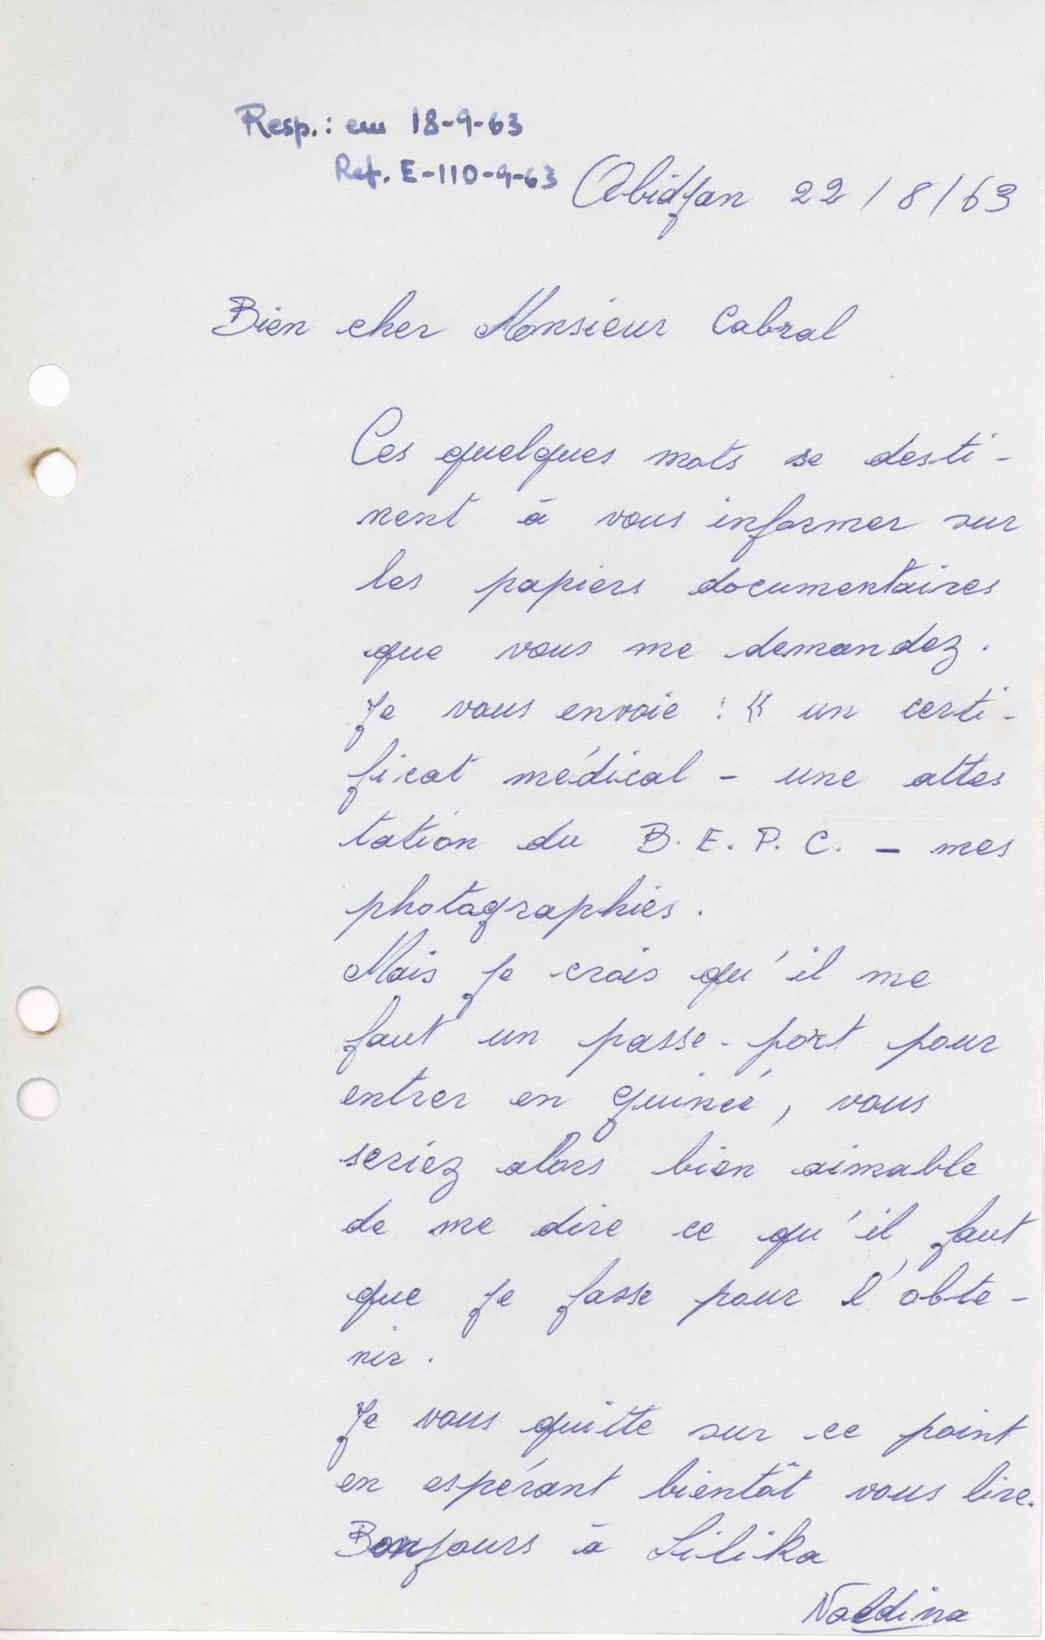 Resp.: em 18-9-63
Ref. E-110-9-63
Abidjan 22/8/63
Bien cher Monsieur Cabral
Ces quelques mots se desti-
nent à vous informer sur
les papiers documentaires
que vous me demandez.
Je vous envoie : « un certi-
ficat médical - une attes
tation du B.E.P.C. - mes
photographies.
Mais je crois qu'il me
faut un passe-port pour
entrer en Guinée, vous
seriez alors bien aimable
de me dire ce qu'il faut
que je fasse pour l'obte-
nir.
Je vous quitte sur ce point
en espérant bientôt vous lire.
Bonjours à Lilika
Naldina